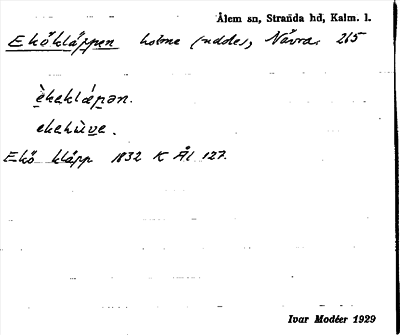 Ålem sn, Stranda hd, Kalm. l.
Ekökläppen holme (udde), Nävra 265
èkeklǽpən.
ekehùve.
Ekö kläpp 1832 K Ål 127.
Ivar Modéer 1929